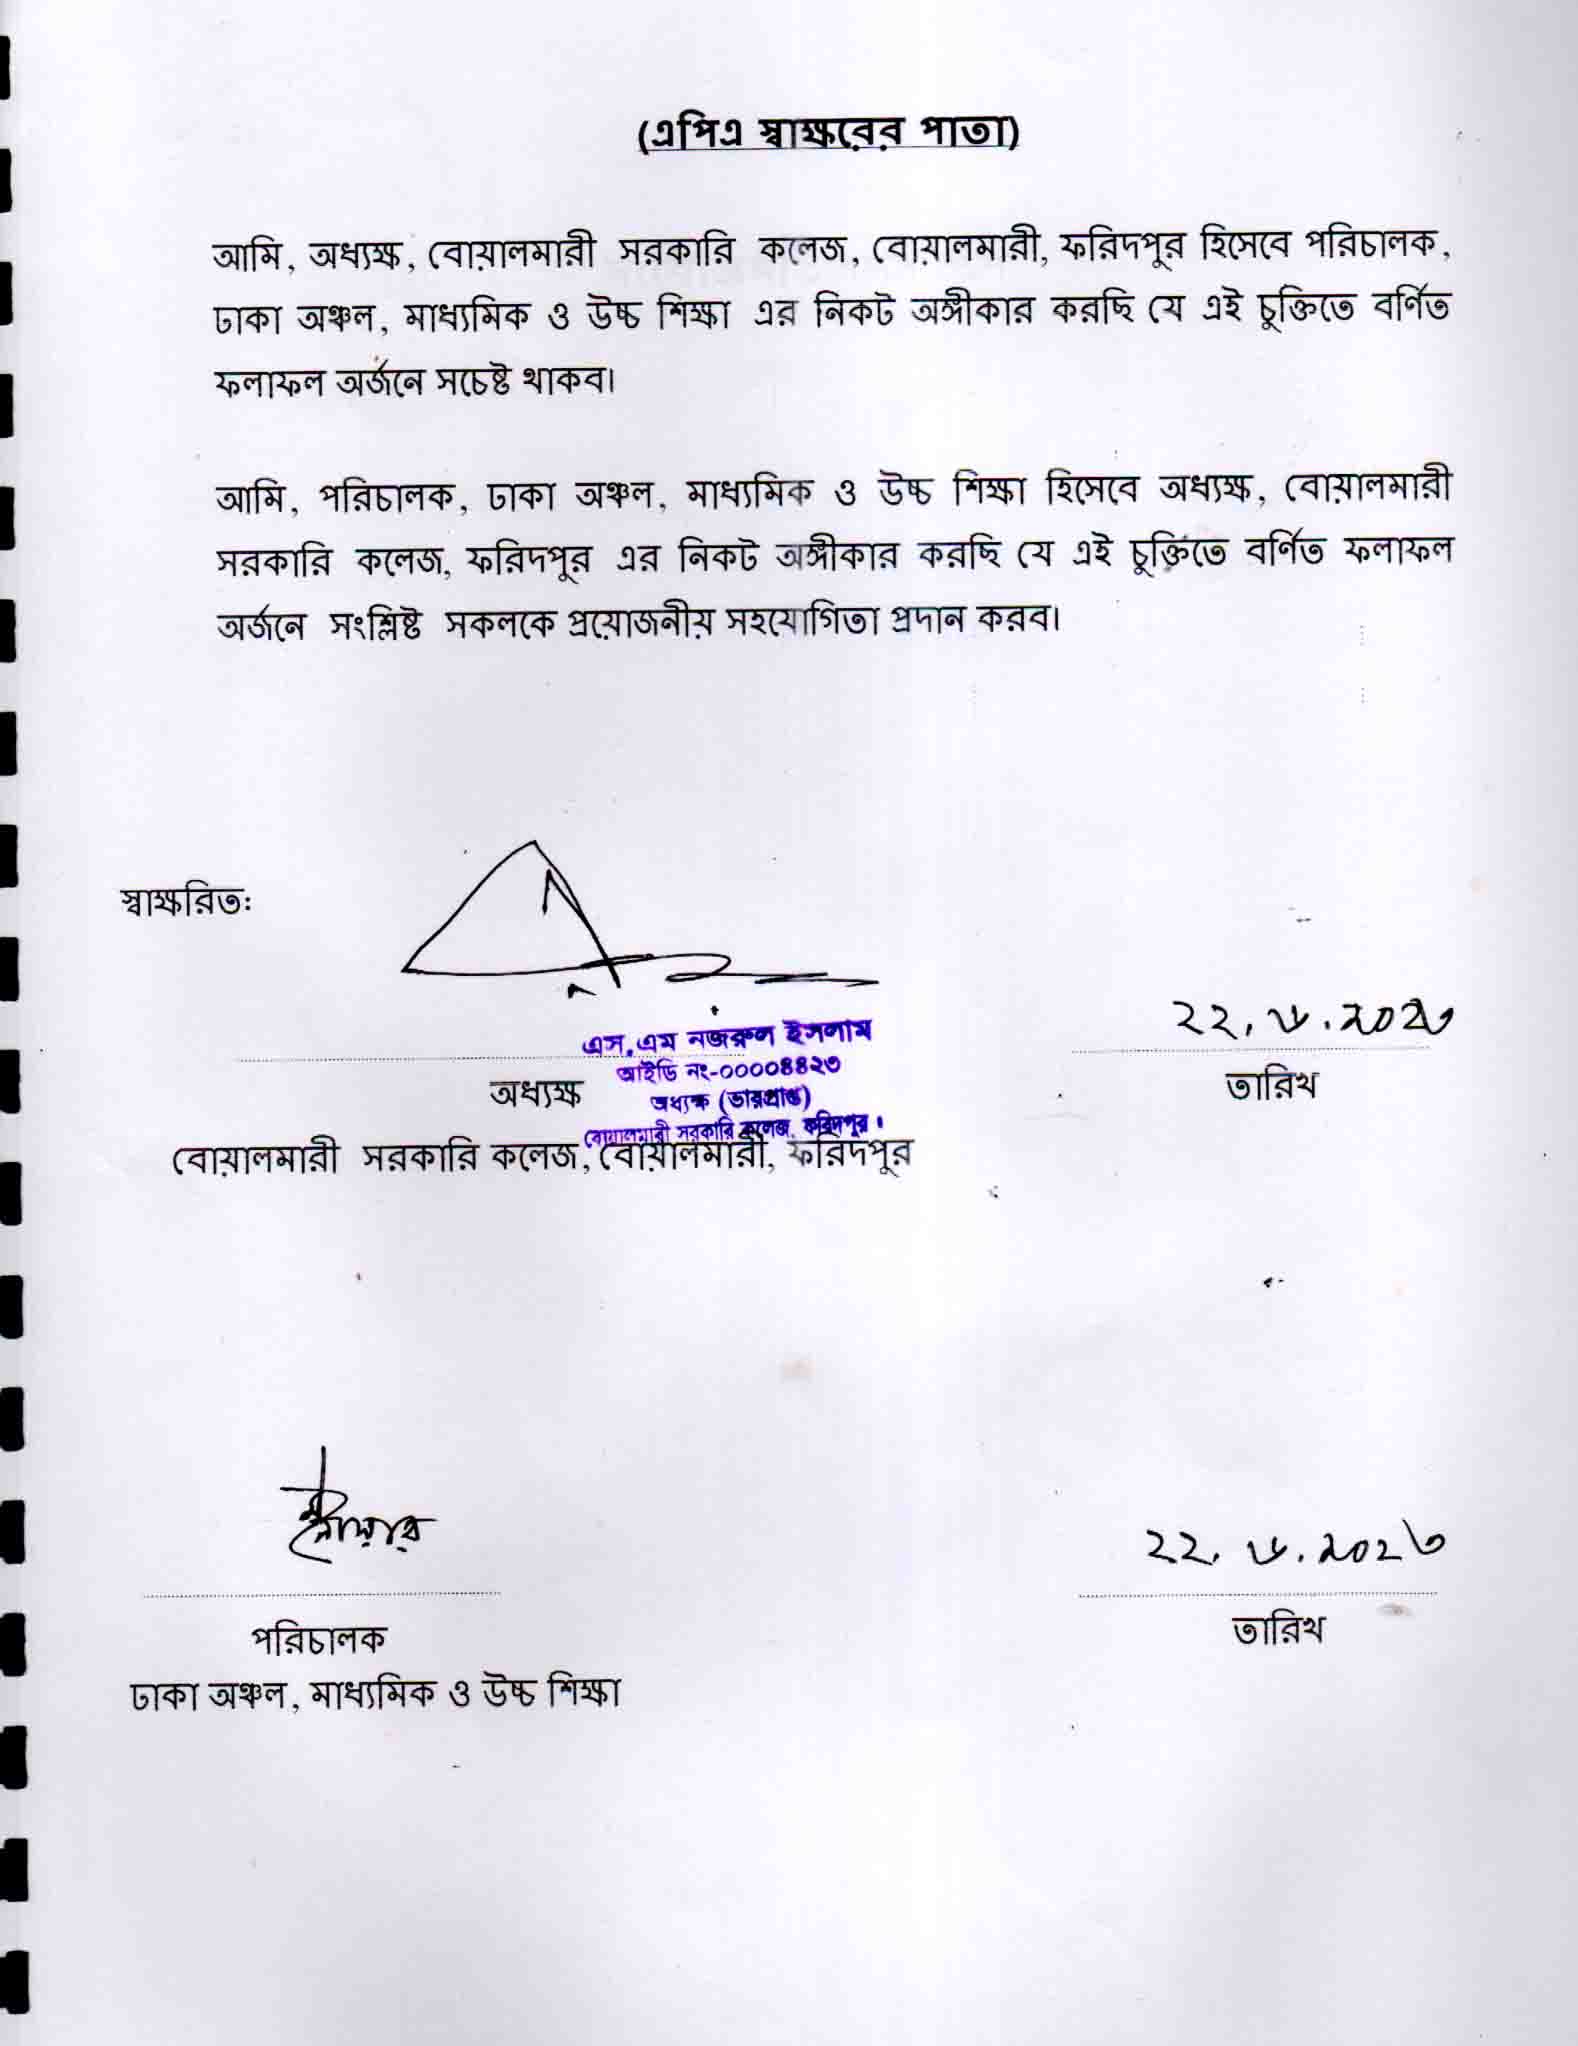 (এপিএ স্বাক্ষরের পাতা)
আমি, অধ্যক্ষ, বোয়ালমারী সরকারি কলেজ, বোয়ালমারী, ফরিদপুর হিসেবে পরিচালক,
ঢাকা অঞ্চল, মাধ্যমিক ও উচ্চ শিক্ষা এর নিকট অঙ্গীকার করছি যে এই চুক্তিতে বর্ণিত
ফলাফল অর্জনে সচেষ্ট থাকব।
আমি, পরিচালক, ঢাকা অঞ্চল, মাধ্যমিক ও উচ্চ শিক্ষা হিসেবে অধ্যক্ষ, বোয়ালমারী
সরকারি কলেজ, ফরিদপুর এর নিকট অঙ্গীকার করছি যে এই চুক্তিতে বর্ণিত ফলাফল
অর্জনে সংশ্লিষ্ট সকলকে প্রয়োজনীয় সহযোগিতা প্রদান করব।
স্বাক্ষরিতঃ
২২.৬.২০২৩
এস.এম নজরুল ইসলাম
আইডি নং-০০০০৪৪২৩
অধ্যক্ষ (ভারপ্রাপ্ত)
বোয়ালমারী সরকারি কলেজ, ফরিদপুর।
অধ্যক্ষ
তারিখ
বোয়ালমারী সরকারি কলেজ, বোয়ালমারী, ফরিদপুর
২২.৬.২০২৩
পরিচালক
তারিখ
ঢাকা অঞ্চল, মাধ্যমিক ও উচ্চ শিক্ষা